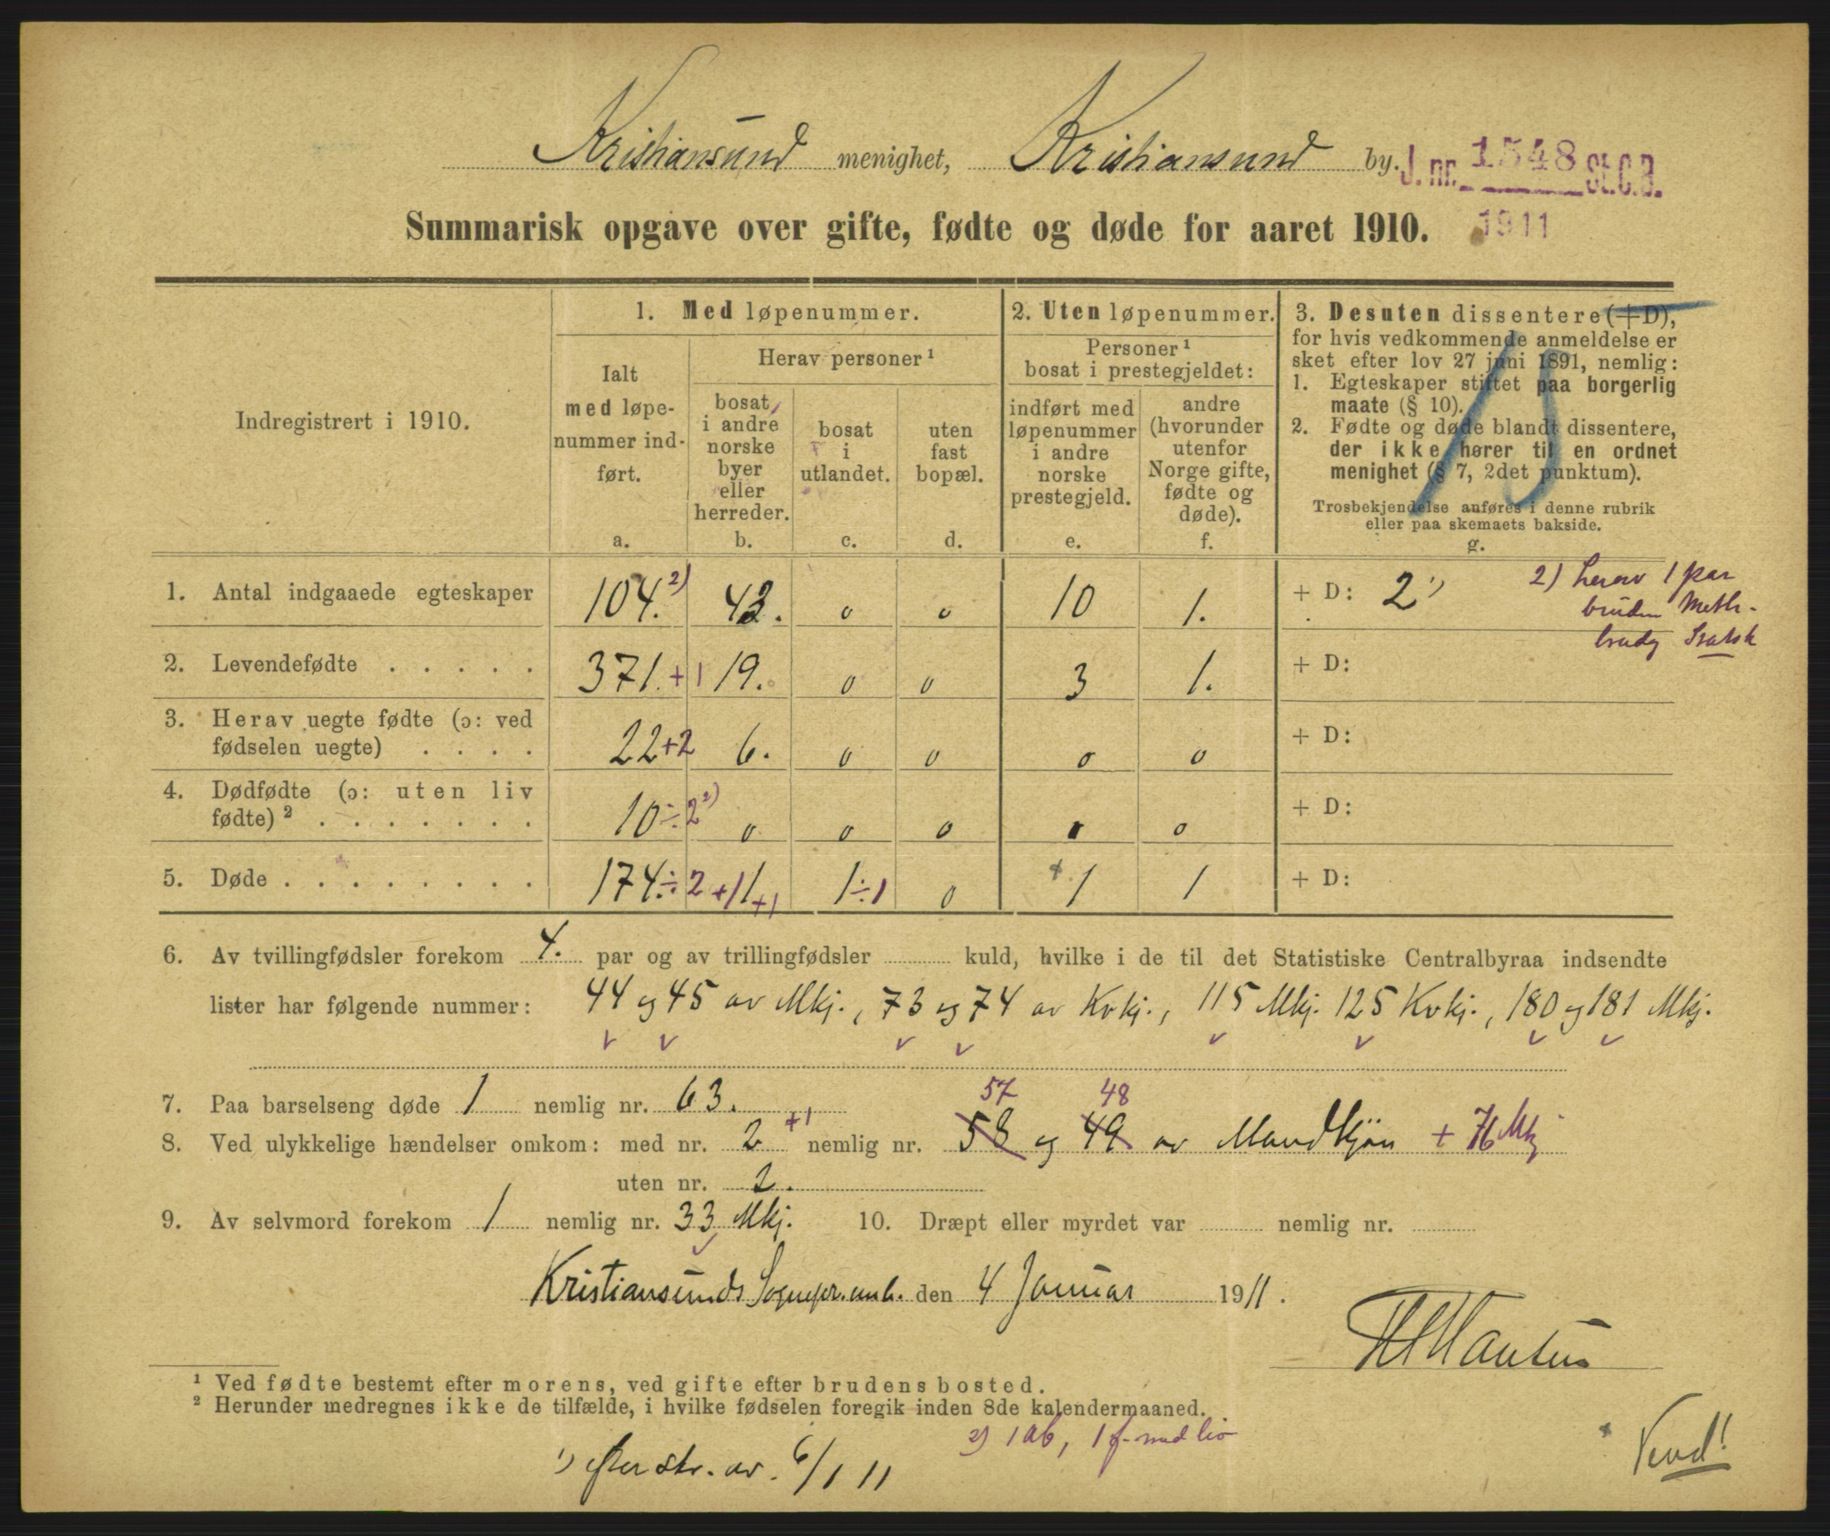 Kristiansund menighet, Kristiansund by.
J. nr. 1548 St.C.B.
1911
Summarisk opgave over gifte, fødte og døde for aaret 1910.
Indregistrert i 1910.
1. Med løpenummer.
Ialt med løpe-
nummer ind-
ført.
a.
Herav personer ¹
bosat
i andre
norske
byer
eller
herreder.
b.
bosat
i
utlandet.
c.
uten
fast
bopæl.
d.
2. Uten løpenummer.
Personer ¹
bosat i prestegjeldet:
indført med
løpenummer
i andre
norske
prestegjeld.
e.
andre
(hvorunder
utenfor
Norge gifte,
fødte og
døde).
f.
3. Desuten dissentere (+D),
for hvis vedkommende anmeldelse er
sket efter lov 27 juni 1891, nemlig:
1. Egteskaper stiftet paa borgerlig
maate (§ 10).
2. Fødte og døde blandt dissentere,
der ikke hører til en ordnet
menighet (§ 7, 2det punktum).
Trosbekjendelse anføres i denne rubrik
eller paa skemaets bakside.
g.
1. Antal indgaaede egteskaper 104. 2) 43. 0 0 10 1. + D: 2 ¹)
2) herav 1 par
bruden Meth-
2. Levendefødte . . . . . 371. +1 19. 0 0 3 1. + D:
3. Herav uegte fødte (ɔ: ved
fødselen uegte) . . . . 22 +2 6. 0 0 0 0 + D:
4. Dødfødte (ɔ: uten liv
fødte) ² . . . . . . . 10 ÷ 2 ²) 0 0 0 0 0 + D:
5. Døde . . . . . . . . 174. ÷ 2 +11 +1 1 ÷1 0 1 1 + D:
6. Av tvillingfødsler forekom 4. par og av trillingfødsler kuld, hvilke i de til det Statistiske Centralbyraa indsendte
lister har følgende nummer: 44 og 45 av Mkj., 73 og 74 av Kvkj., 115 Mkj. 125 Kvkj., 180 og 181 Mkj.
7. Paa barselseng døde 1 nemlig nr. 63.
57 48
8. Ved ulykkelige hændelser omkom: med nr. 2 +1 nemlig nr. 58 og 49 av Mandkjøn + 76 Mkj
uten nr. 2.
9. Av selvmord forekom 1 nemlig nr. 33 Mkj. 10. Dræpt eller myrdet var nemlig nr.
Kristiansunds Sognepr.emb. den 4 Januar 1911.
¹ Ved fødte bestemt efter morens, ved gifte efter brudens bosted.
² Herunder medregnes ikke de tilfælde, i hvilke fødselen foregik inden 8de kalendermaaned.
2) 1 ab, 1 f. med liv
¹) efter skr. av. 6/1 11
Vend!